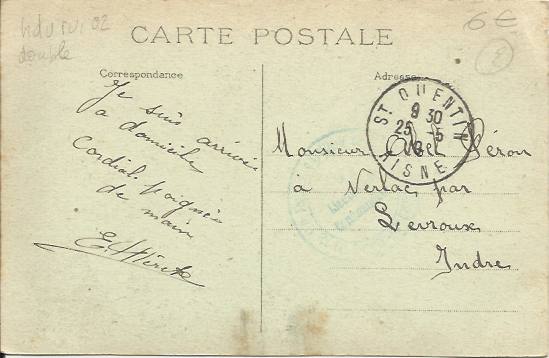 double
6€
2
CARTE POSTALE
Correspondance
Adresse
Je suis arrivé
a domicile
Cordiale poignée
de main
ST QUENTIN
9 30
25 -5
AISNE
Monsieur Abel Péron
à Verlac par
Levroux
Indre